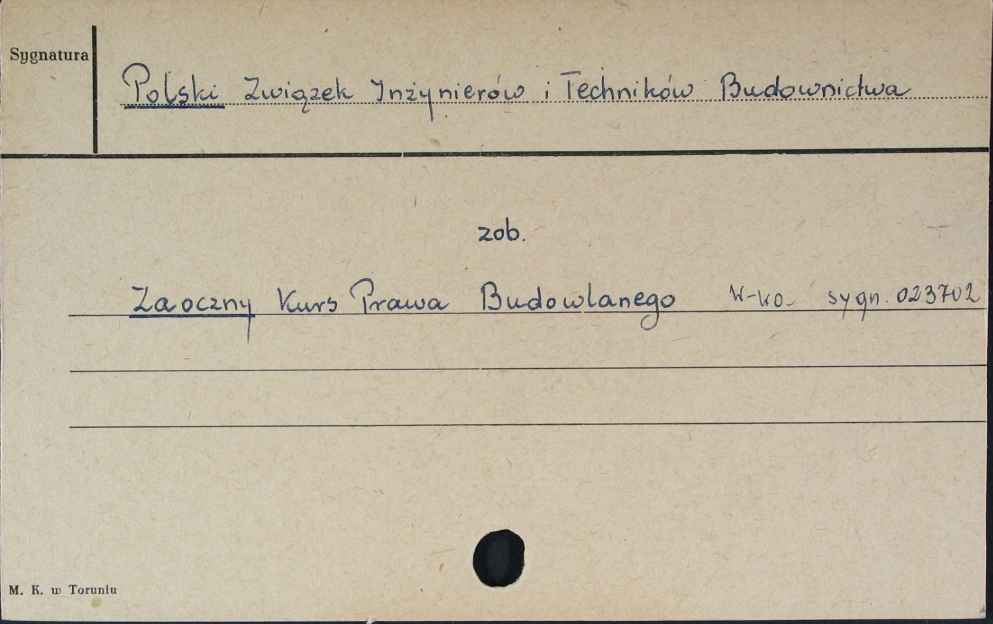 Sygnatura
Polski Związek Inżynierów i Techników Budownictwa
zob.
Zaoczny Kurs Prawa Budowlanego W-wo- sygn. 023702
M. K. w Toruniu